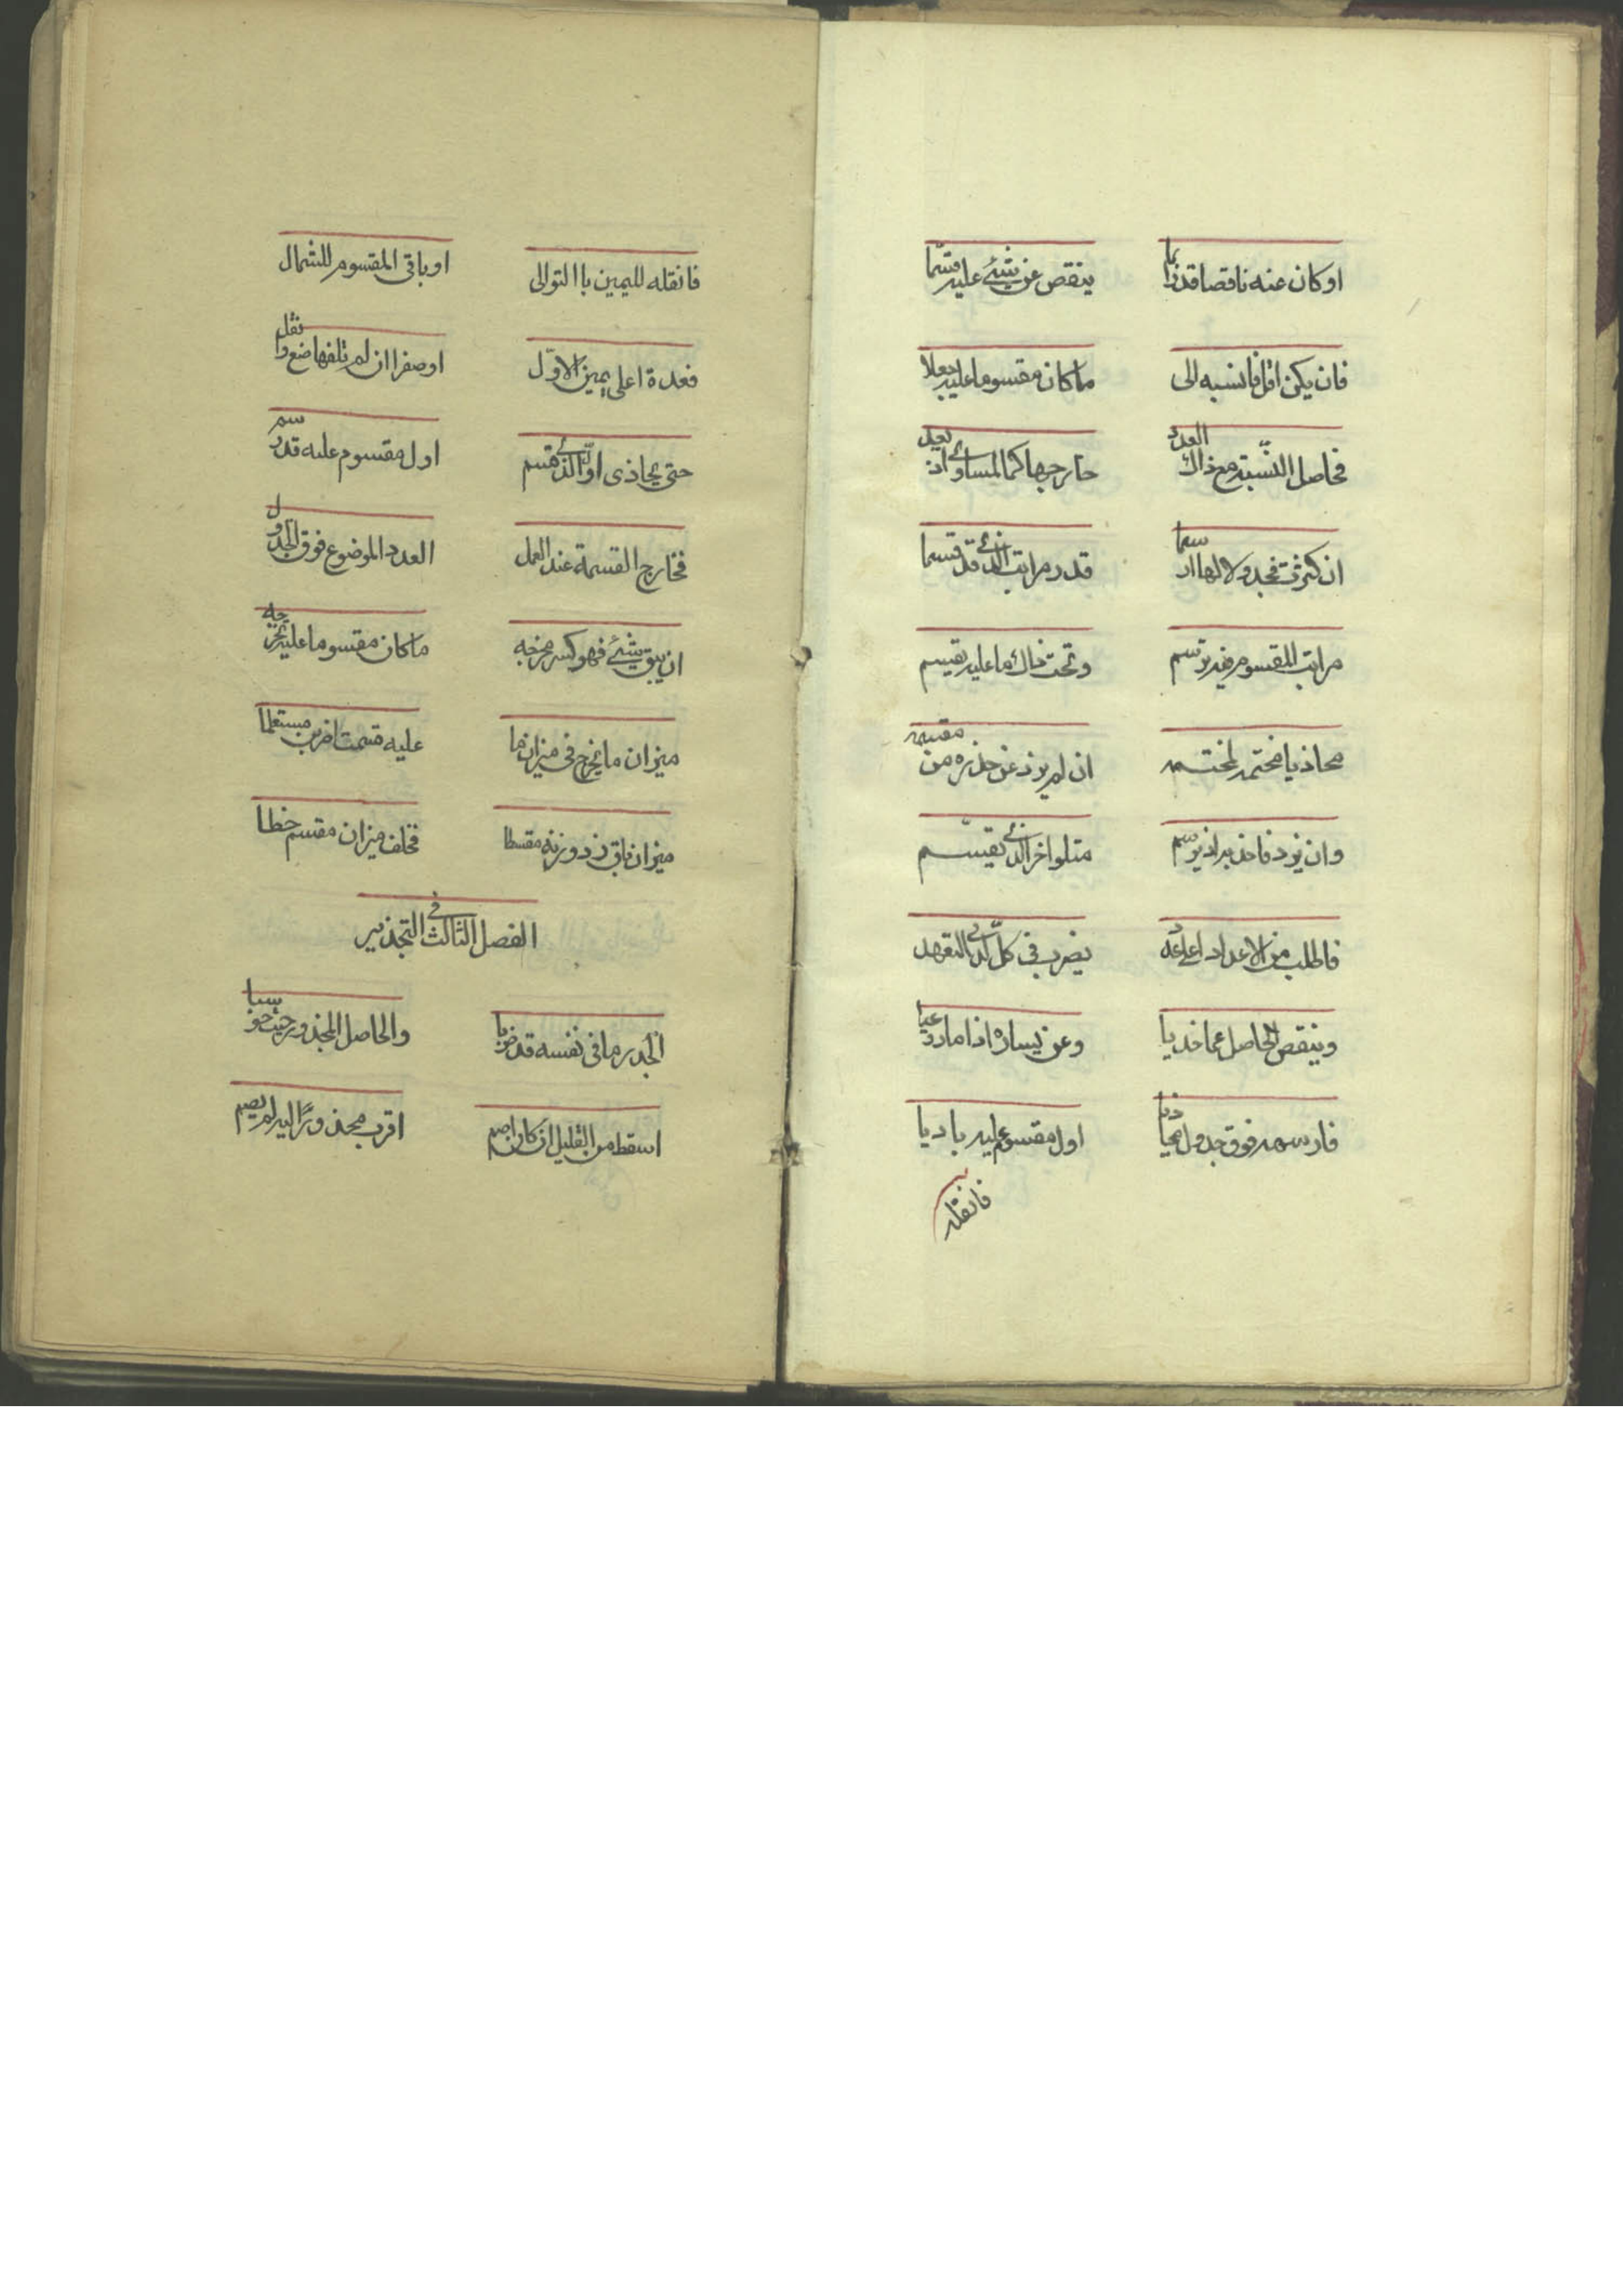 اوكان عنه ناقصا قد نما ينقص عن شئ عليه قسما
فان يكن اقل فانسبه الى ماكان مقسوما عليه جعلا
فحاصل النسبة مع ذاك العدد خارجها كما لمساوئ اذ يعد
ان كثرت فجدولا لها ارسما قدر مراتب الذئ قد قسما
مراتب المقسوم فيه ترتسم وتحت ذاك ما عليه يقسم
محاذيا مختمه لمختمه ان لم يزد عن حذره من مقسمه
وان يزد فاحذ به اذ يرسم متلو اخر الذئ يقسم
فاطلب من الاعداد اعلى عدد يضرب فى كل لدى التعهد
وينقص الحاصل عما حذيا وعن يساره اذا ما دعيا
فارسمه فوق جدول محاذيا اول مقسوم عليه باديا
فانقله
فانقله لليمين باالتوالى اوباقى المقسوم للشمال
فعدة اعلى يمين الاول اوصفرا ان لم تلفها ضع وانقل
حتى يحاذى اول الذئ قسم اول مقسوم عليه قد رسم
فخارج القسمة عند العمل العدد الموضوع فوق الجدول
ان يبق شئ فهو كسر مخرجه ماكان مقسوما عليه يخرجه
ميزان ما يخرج فى ميزان ما عليه قسمت اضربن مستعلما
ميزان باق زد وزنه مقسطا فخلف ميزان مقسم خطا
الفصل الثالث فى التجذير
الجذر ما فى نفسه قد ضربا والحاصل المجذور حيث حوسبا
اسقط من القليل ان كان اصم اقرب مجذور اليه لم يصم